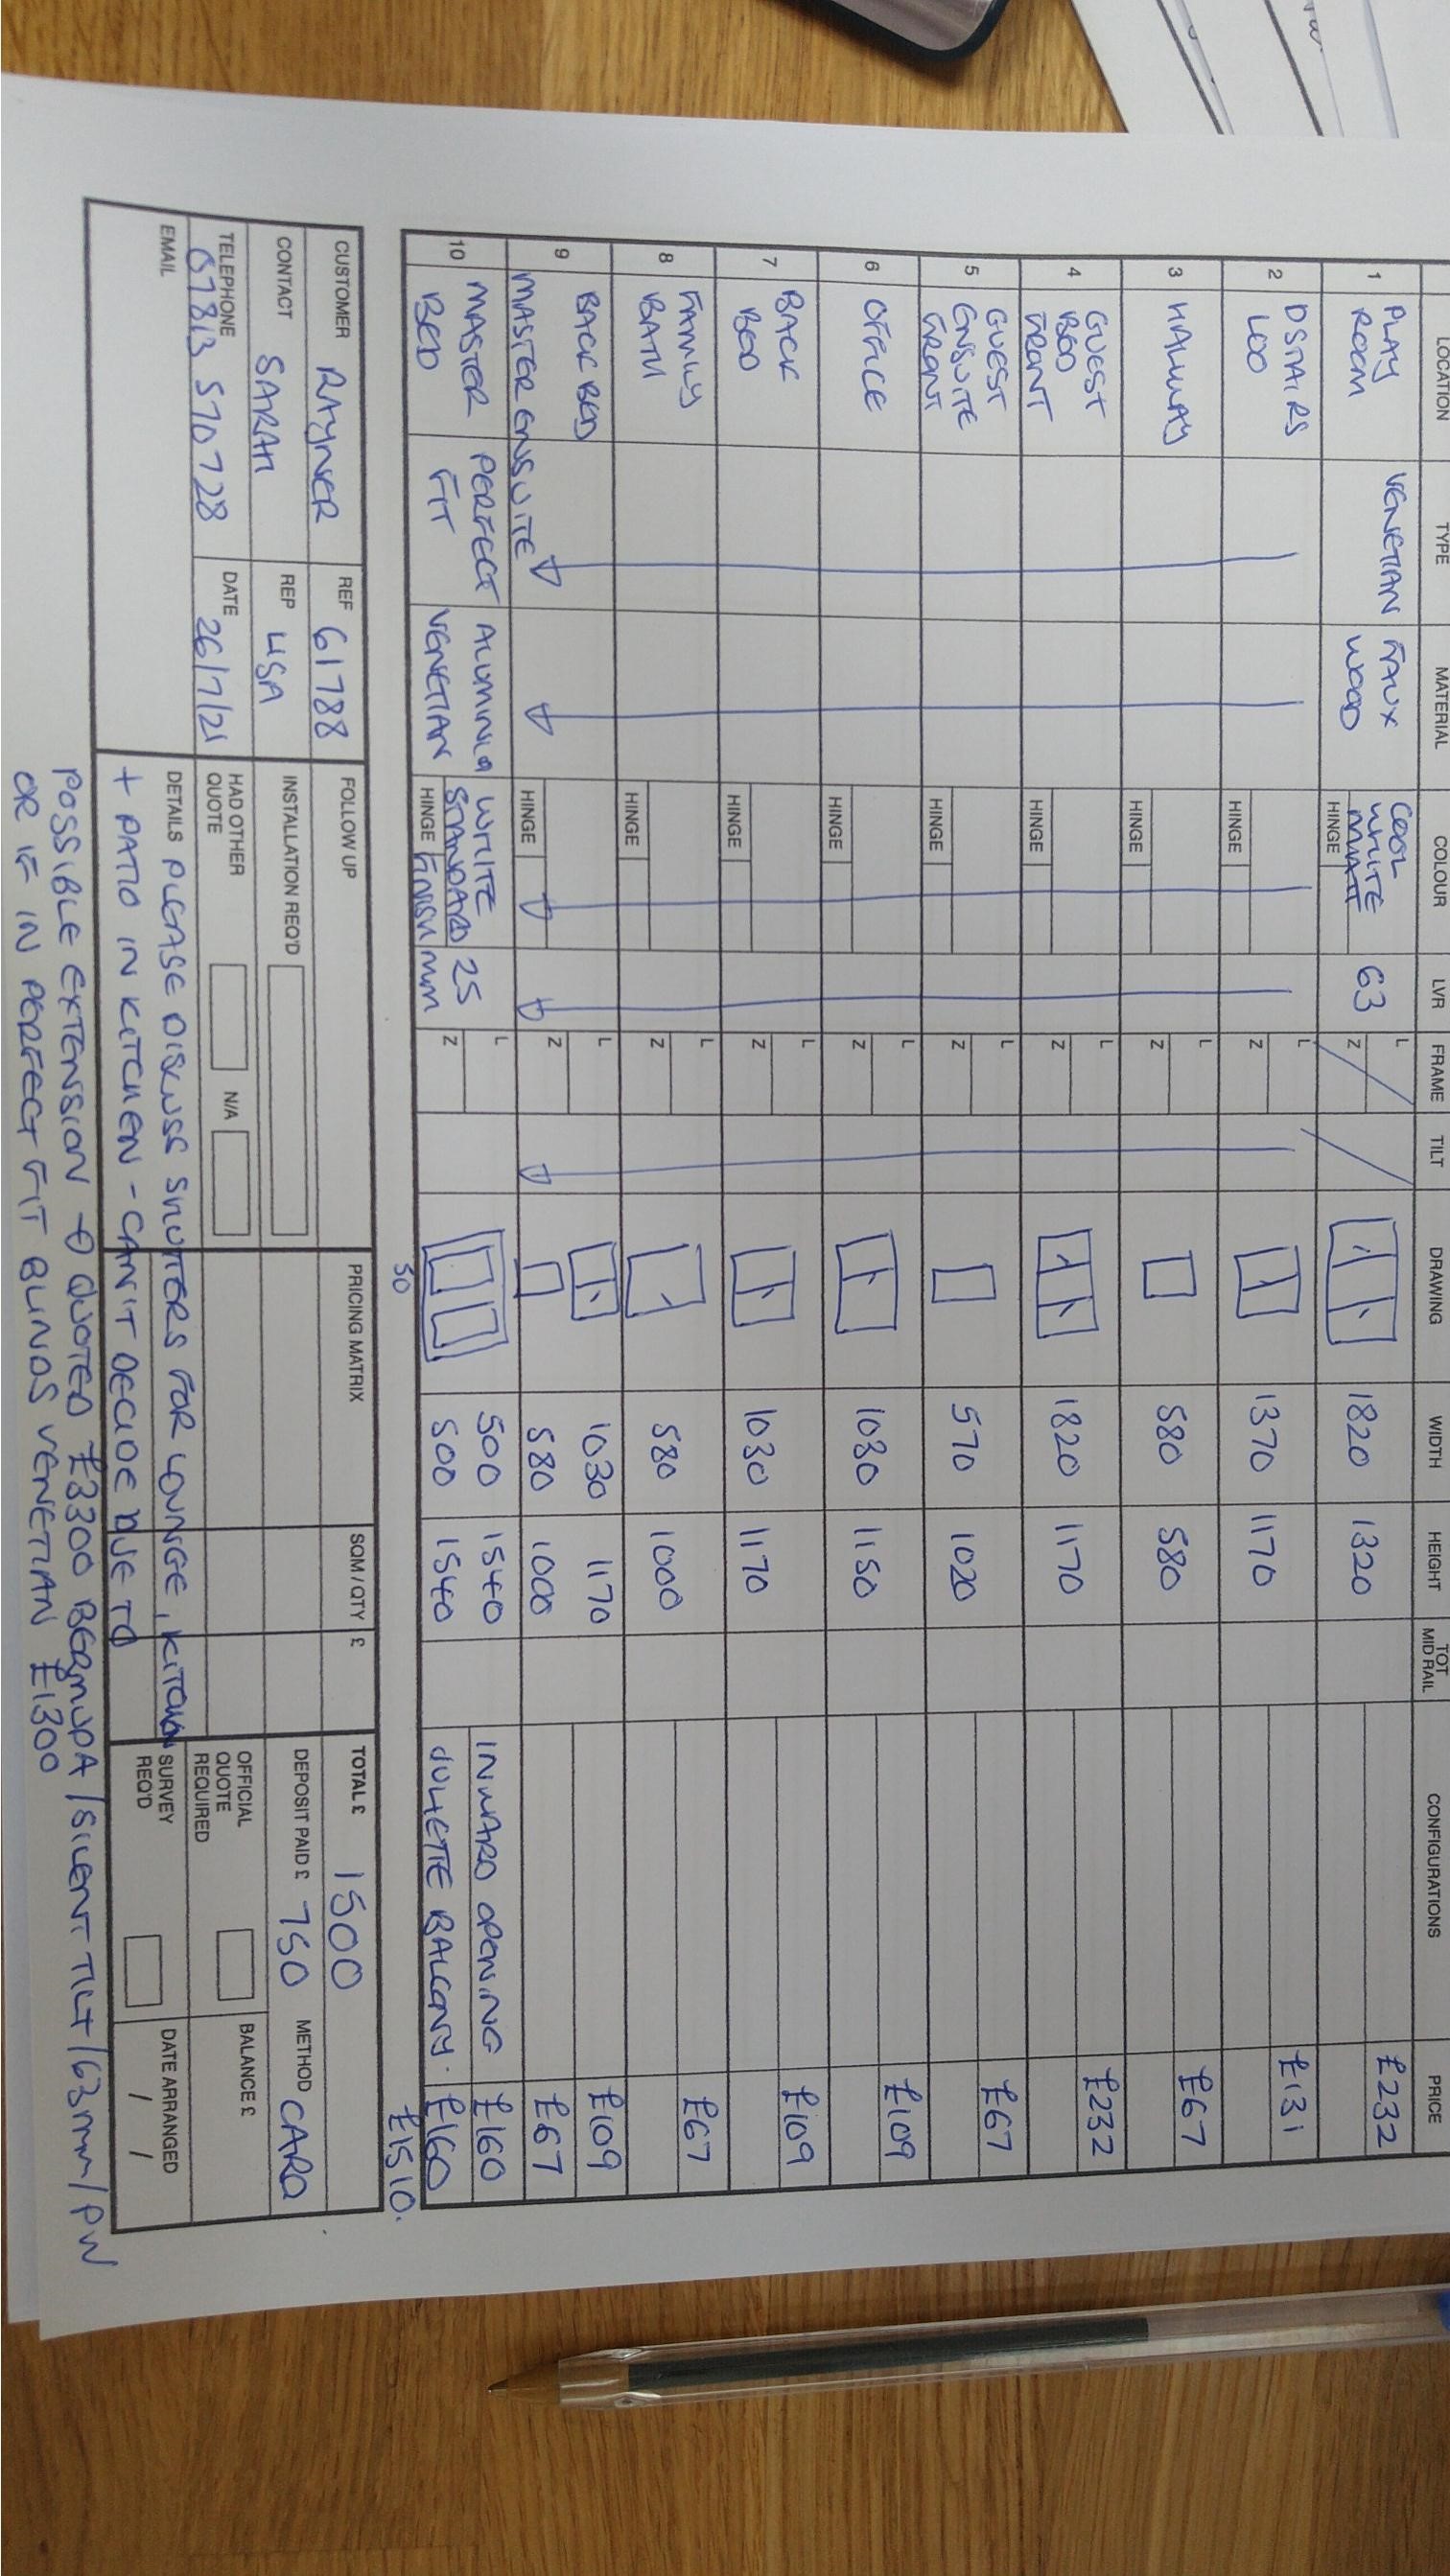 LOCATION TYPE MATERIAL COLOUR LVR FRAME TILT DRAWING WIDTH HEIGHT TOT MID RAIL CONFIGURATIONS PRICE
1 PLAY ROOM VENETIAN FAUX WOOD COOL WHITE MATT HINGE 63 L Z 1820 1320 £232
2 DSTAIRS LOO HINGE L Z 1370 1170 £131
3 HALLWAY HINGE L Z 580 580 £67
4 GUEST BED FRONT HINGE L Z 1820 1170 £232
5 GUEST ENSUITE FRONT HINGE L Z 570 1020 £67
6 OFFICE HINGE L Z 1030 1150 £109
7 BACK BED HINGE L Z 1030 1170 £109
8 FAMILY BATH HINGE L Z 580 1000 £67
9 BACK BED L 1030 1170 £109
MASTER ENSUITE HINGE Z 580 1000 £67
10 MASTER PERFECT ALUMINIUM WHITE STANDARD 25 L 500 1540 INWARD OPENING £160
BED FIT VENETIAN HINGE FINISH MM Z 500 1540 JULIETTE BALCONY. £160
50 £1510.
CUSTOMER RAYNER REF 61788
CONTACT SARAH REP LISA
TELEPHONE 07813 570728 DATE 26/7/21
EMAIL
FOLLOW UP
INSTALLATION REQ'D
HAD OTHER QUOTE N/A
PRICING MATRIX SQM / QTY £
TOTAL £ 1500
DEPOSIT PAID £ 750 METHOD CARD
OFFICIAL QUOTE REQUIRED BALANCE £
SURVEY REQ'D DATE ARRANGED / /
DETAILS PLEASE DISKUSS SHUTTERS FOR LOUNGE, KITCHEN
+ PATIO IN KITCHEN - CAN'T DECIDE DUE TO
POSSIBLE EXTENSION → QUOTED £3300 BERMUDA / SILENT TILT / 63mm / PW
OR IF IN PERFECT FIT BLINDS VENETIAN £1300